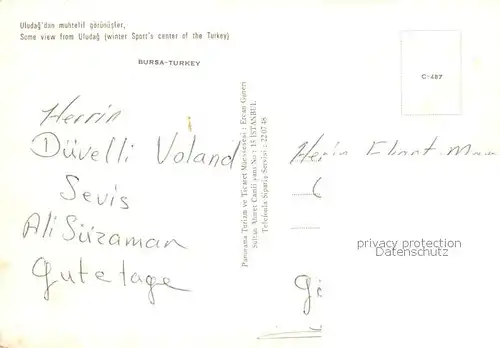 Uludağ'dan muhtelif görünüşler,
Some view from Uludağ (winter Sport's center of the Turkey)
BURSA-TURKEY
C-487
Herrin
Düvelli Voland
Sevis
Ali Süzaman
gutetage
Panorama Turizm ve Ticaret Müessesesi : Ercan Güneri
Sultan Ahmet Camii yanı No: 15 İSTANBUL
Telefonla Sipariş Servisi : 22 07 48
privacy protection
Datenschutz